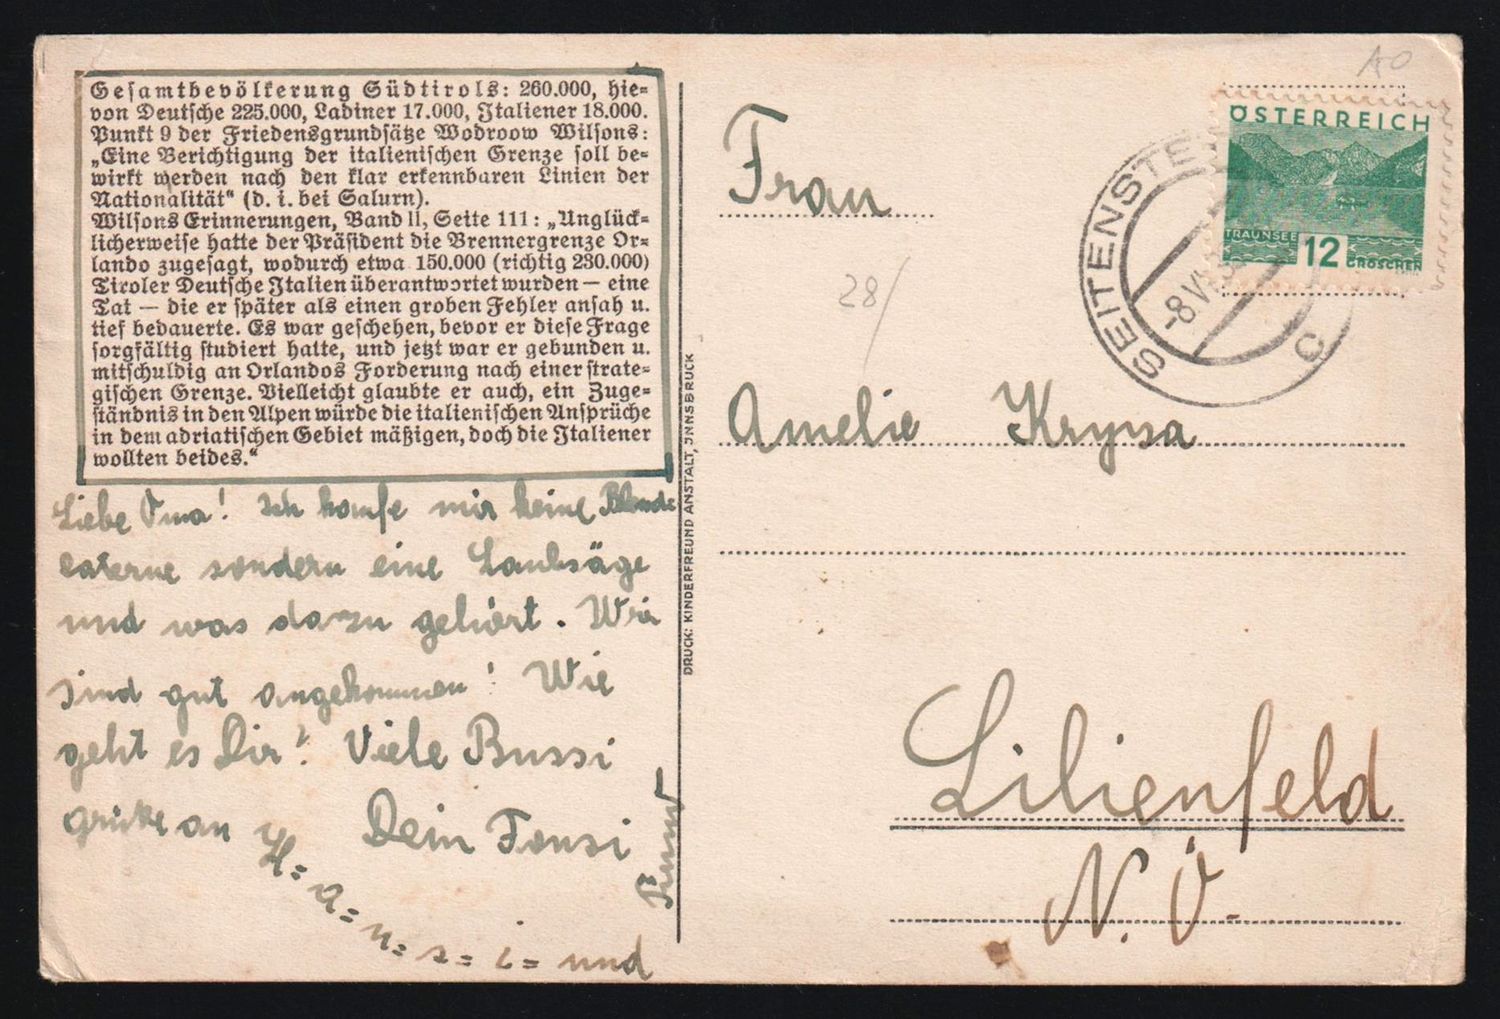 Gesamtbevölkerung Südtirols: 260.000, hie=
von Deutsche 225.000, Ladiner 17.000, Italiener 18.000.
Punkt 9 der Friedensgrundsätze Wodroow Wilsons:
„Eine Berichtigung der italienischen Grenze soll be=
wirkt werden nach den klar erkennbaren Linien der
Nationalität“ (d. i. bei Salurn).
Wilsons Erinnerungen, Band II, Seite 111: „Unglück=
licherweise hatte der Präsident die Brennergrenze Or=
lando zugesagt, wodurch etwa 150.000 (richtig 230.000)
Tiroler Deutsche Italien überantwortet wurden — eine
Tat — die er später als einen groben Fehler ansah u.
tief bedauerte. Es war geschehen, bevor er diese Frage
sorgfältig studiert hatte, und jetzt war er gebunden u.
mitschuldig an Orlandos Forderung nach einer strate=
gischen Grenze. Vielleicht glaubte er auch, ein Zuge=
ständnis in den Alpen würde die italienischen Ansprüche
in dem adriatischen Gebiet mäßigen, doch die Italiener
wollten beides.“
Liebe Oma! Ich kaufe mir keine Blend=
laterne sondern eine Laubsäge
und was dazu gehört. Wir
sind gut angekommen! Wie
geht es Dir? Viele Bussi
Dein Fonsi
grüße an
H=a=n=s=i= und
DRUCK: KINDERFREUND ANSTALT, INNSBRUCK
Frau
Amelie Krysa
Lilienfeld
N.Ö.
28/
ÖSTERREICH
TRAUNSEE 12 GROSCHEN
SEITENSTE
-8 VI
C